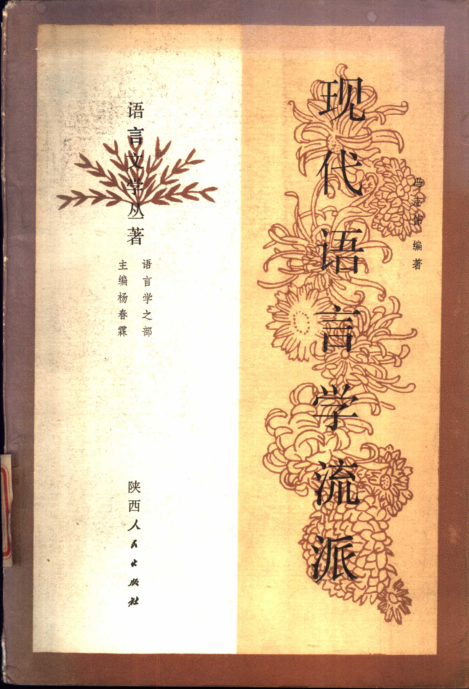 现代语言学流派
编著
语言文学丛著
语言学之部
主编杨春霖
陕西人民出版社